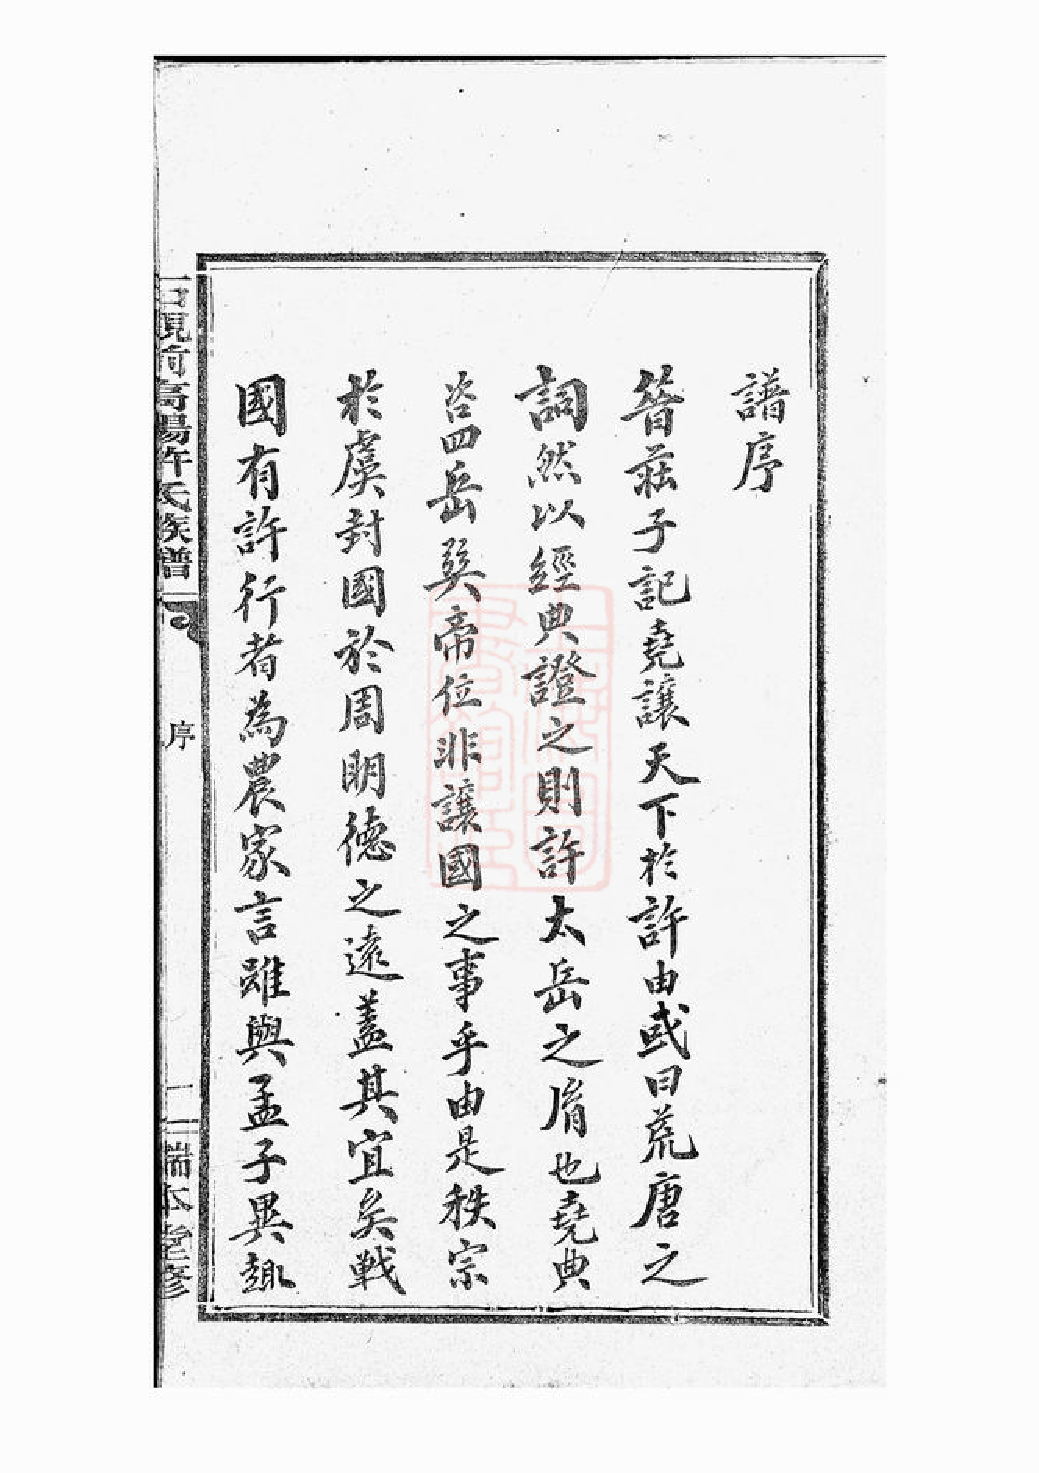 譜序
昝莊子記堯讓天下於許由或曰荒唐之
詞然以經典證之則許太岳之胤也堯典
咨四岳巽帝位非讓國之事乎由是秩宗
於虞封國於周明德之遠蓋其宜矣戰
國有許行者為農家言雖與孟子異趣
高陽許氏族譜
序
一
端本堂修